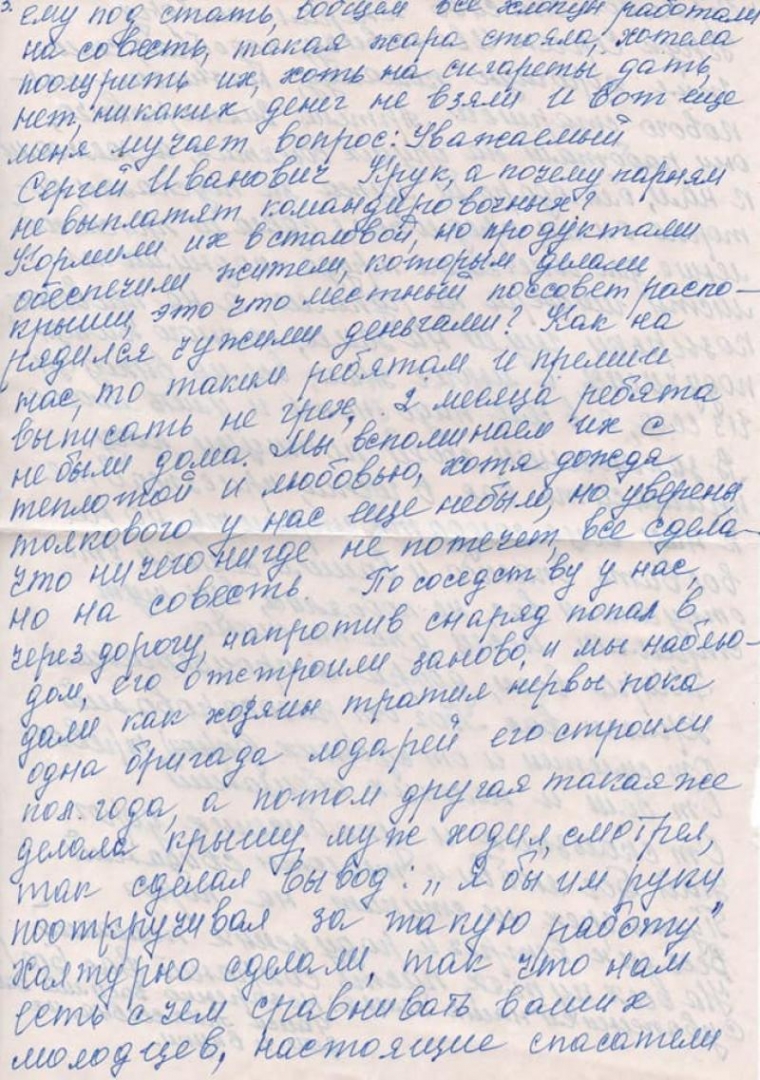 ему под стать, вобщем все хлопцы работали
на совесть, такая жара стояла, хотела
поощрить их, хоть на сигареты дать,
нет, никаких денег не взяли и вот еще
меня мучает вопрос: Уважаемый
Сергей Иванович Крук, а почему парням
не выплатят командировочных?
Кормили их в столовой, но продуктами
обеспечили жители, которым делали
крыши, это что местный поссовет распо-
рядился чужими деньгами? Как на
нас, то таким ребятам и премии
выписать не грех, 2 месяца ребята
не были дома. Мы вспоминаем их с
теплотой и любовью, хотя дождя
толкового у нас еще небыло, но уверены
что ничего нигде не потечет, все сдела-
но на совесть По соседству у нас,
через дорогу, напротив снаряд попал в
дом, его отстроили заново, и мы наблю-
дали как хозяин тратил нервы пока
одна бригада лодарей его строили
пол.года, а потом другая такая же
делала крышу, муж ходил, смотрел,
так сделал вывод: „Я бы им руки
пооткручивал за такую работу"
халтурно сделали, так что нам
есть с чем сравнивать ваших
молодцев, настоящие спасатели